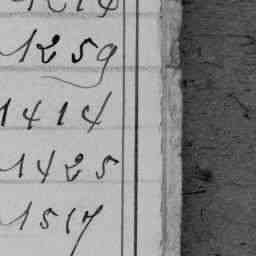 1259
1414
1425
1517